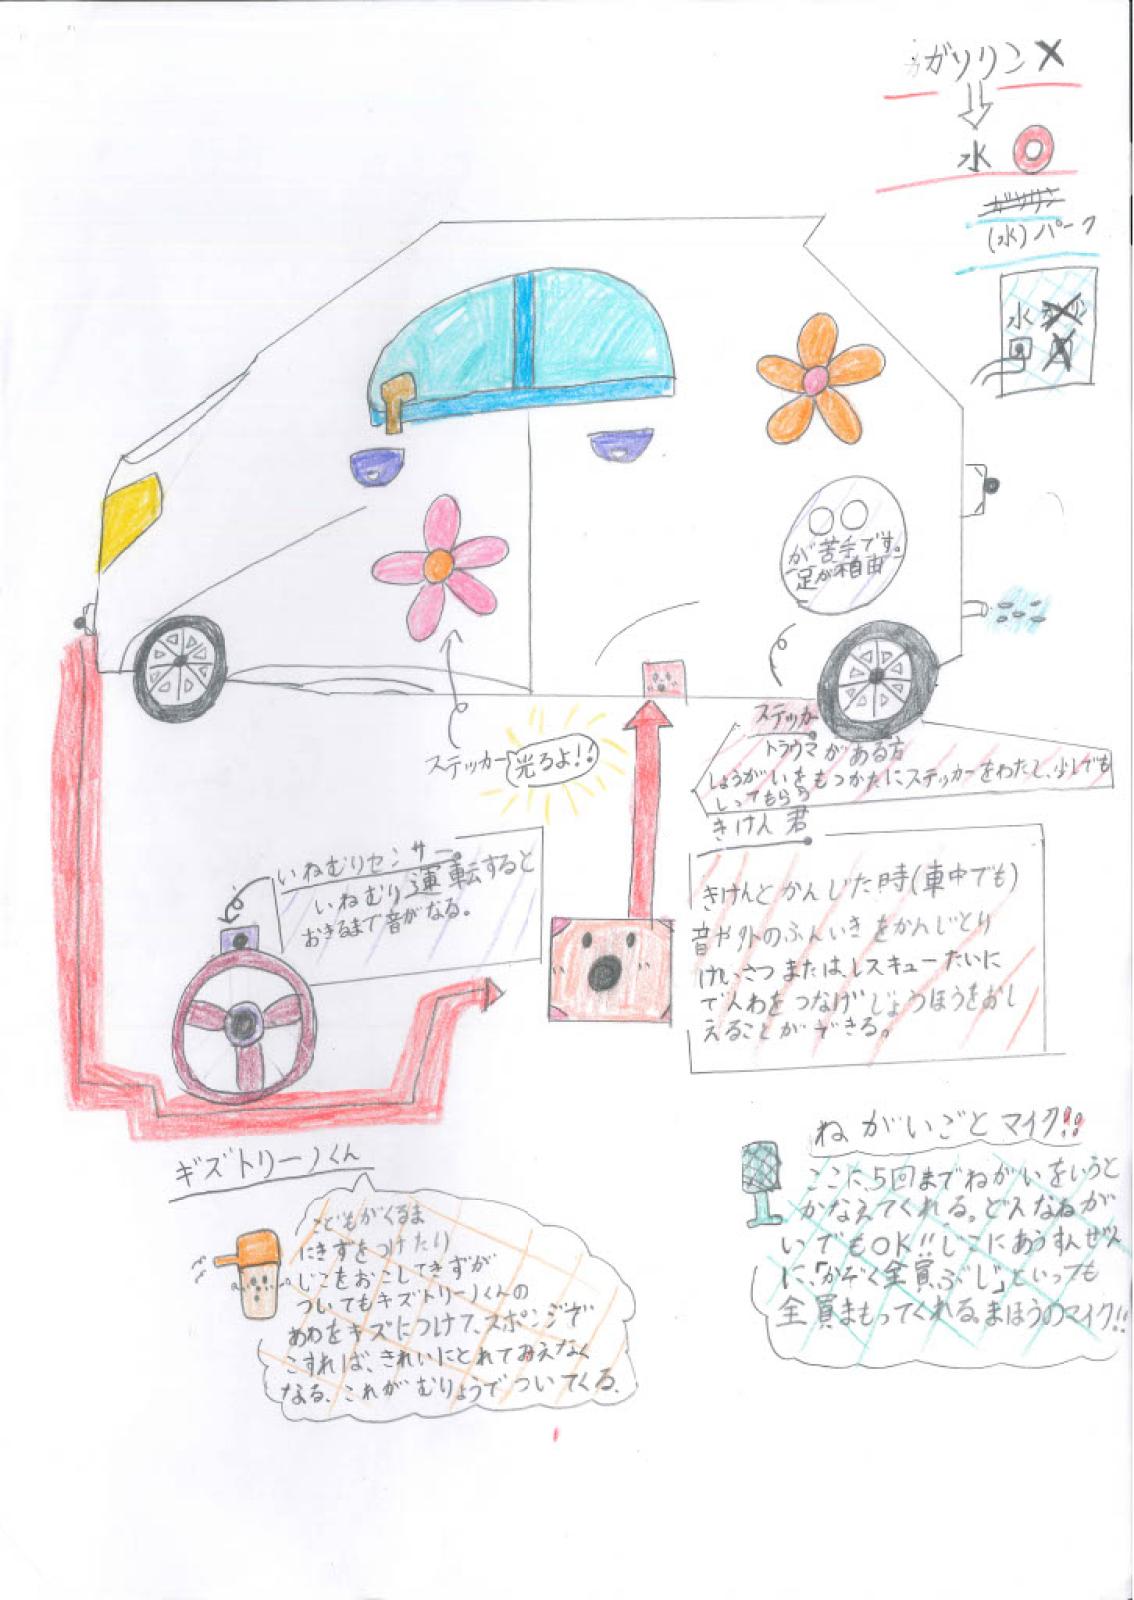 ガソリン X
水
ガソリン
(水)パーク
水
○○
が苦手です。
足が不自由
ステッカー
光るよ!!
ステッカー
トラウマがある方
しょうがいをもつかたにステッカーをわたし、少しでも
しってもらう
いねむりセンサー。
いねむり運転すると
おきるまで音がなる。
きけん君
きけんとかんじた時(車中でも)
音や外のふんいきをかんじとり
けいさつまたは、レスキューたいに
でんわをつなげじょうほうをおし
えることができる。
キズトリーノくん
こどもがくるま
にきずをつけたり
じこをおこしてきずが
ついてもキズトリーノくんの
あわをキズにつけて、スポンジで
こすれば、きれいにとれてみえなく
なる、これがむりょうでついてくる、
ねがいごとマイク!!
ここに、5回までねがいをいうと
かなえてくれる。どんなねが
いでもOK!!じこにあうすんぜん
に、「かぞく全員ぶじ」といっても
全員まもってくれる。まほうのマイク!!